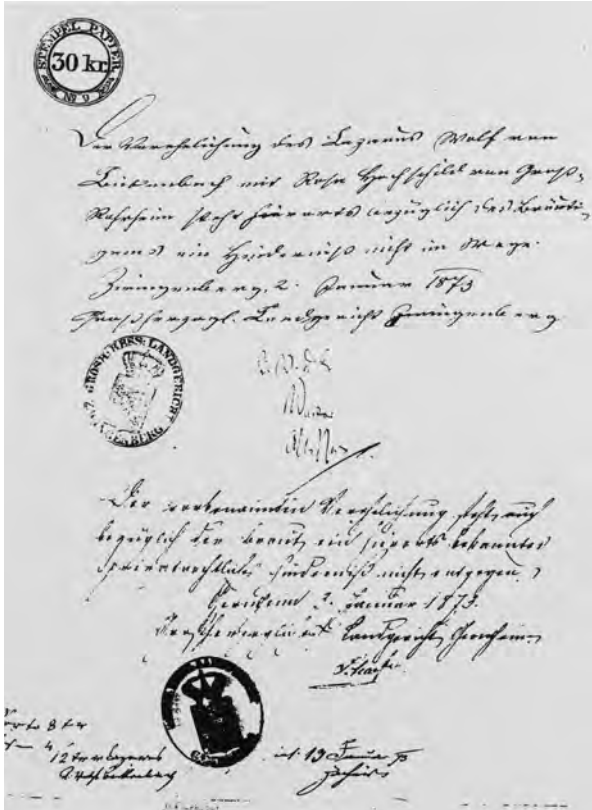 STEMPEL PAPIER
30 kr.
No 9
Der Verehelichung des Lazarus Wolf von
Bickenbach mit Rosa Hochschild von Groß-
Rohrheim steht hierorts bezüglich des Bräuti-
gams ein Hinderniß nicht im Wege.
Zwingenberg, 2. Januar 1873
Großherzogl. Landgericht Zwingenberg
GROSH. HESS. LANDGERICHT
ZWINGENBERG
Der vorbenannten Verehelichung steht auch
bezüglich der Braut ein hierorts bekanntes
privatrechtliches Hinderniß nicht entgegen.
Gernsheim 3. Januar 1873.
Landgericht Gernsheim
8 kr
4
12 kr Lazarus
13 Januar